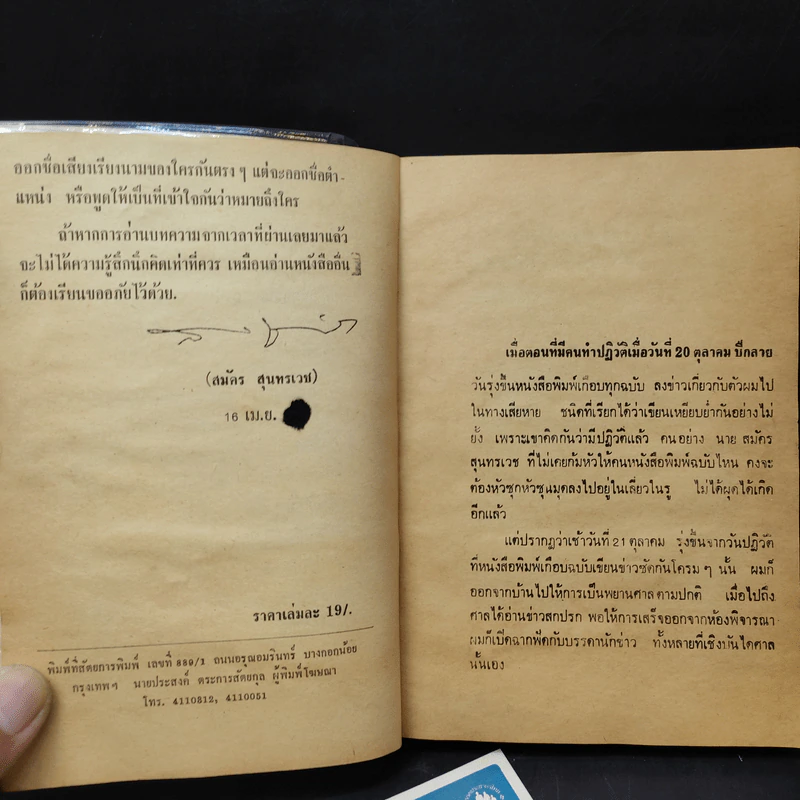 ออกชื่อเสียงเรียงนามของใครกันตรง ๆ แต่จะออกชื่อตำ-
แหน่ง หรือพูดให้เป็นที่เข้าใจกันว่าหมายถึงใคร
ถ้าหากการอ่านบทความจากเวลาที่ผ่านเลยมาแล้ว
จะไม่ได้ความรู้สึกนึกคิดเท่าที่ควร เหมือนอ่านหนังสืออื่น
ก็ต้องเรียนขออภัยไว้ด้วย.
(สมัคร สุนทรเวช)
16 เม.ย.
ราคาเล่มละ 19/.
พิมพ์ที่สัตยการพิมพ์ เลขที่ 889/1 ถนนอรุณอมรินทร์ บางกอกน้อย
กรุงเทพฯ นายประสงค์ ตระการสัตยกุล ผู้พิมพ์โฆษณา
โทร. 4110812, 4110051
เมื่อตอนที่มีคนทำปฏิวัติเมื่อวันที่ 20 ตุลาคม ปีกลาย
วันรุ่งขึ้นหนังสือพิมพ์เกือบทุกฉบับ ลงข่าวเกี่ยวกับตัวผมไป
ในทางเสียหาย ชนิดที่เรียกได้ว่าเขียนเหยียบย่ำกันอย่างไม่
ยั้ง เพราะเขาคิดกันว่ามีปฏิวัติแล้ว คนอย่าง นาย สมัคร
สุนทรเวช ที่ไม่เคยก้มหัวให้คนหนังสือพิมพ์ฉบับไหน คงจะ
ต้องหัวซุกหัวซุนมุดลงไปอยู่ในเลี่ยวในรู ไม่ได้ผุดได้เกิด
อีกแล้ว
แต่ปรากฏว่าเช้าวันที่ 21 ตุลาคม รุ่งขึ้นจากวันปฏิวัติ
ที่หนังสือพิมพ์เกือบฉบับเขียนข่าวซัดกันโครม ๆ นั้น ผมก็
ออกจากบ้านไปให้การเป็นพยานศาลตามปกติ เมื่อไปถึง
ศาลได้อ่านข่าวสกปรก พอให้การเสร็จออกจากห้องพิจารณา
ผมก็เปิดฉากฟัดกับบรรดานักข่าว ทั้งหลายที่เชิงบันไดศาล
นั้นเอง